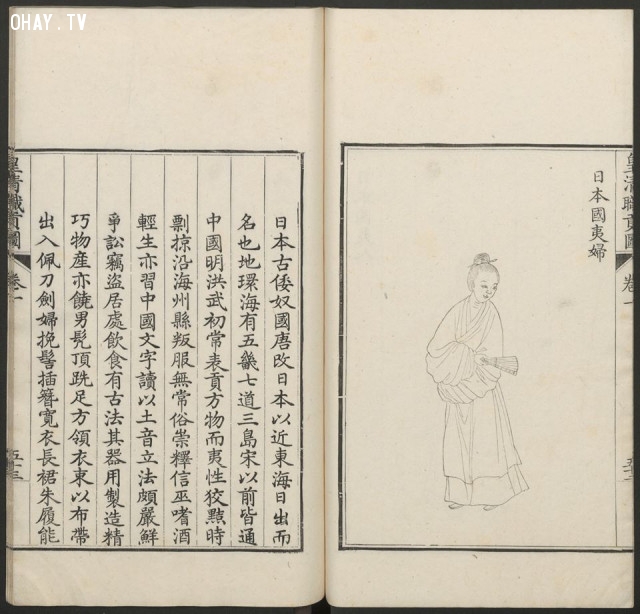 OHAY.TV
皇清職貢圖
卷一
日本國夷婦
日本古倭奴國唐改日本以近東海日出而
名也地環海有五畿七道三島宋以前皆通
中國明洪武初常表貢方物而夷性狡黠時
剽掠沿海州縣叛服無常俗崇釋信巫嗜酒
輕生亦習中國文字讀以土音立法頗嚴鮮
爭訟竊盜居處飲食有古法其器用製造精
巧物産亦饒男髡頂跣足方領衣束以布帶
出入佩刀劍婦挽髻插簪寬衣長裙朱履能
皇清職貢圖
卷一
五十三